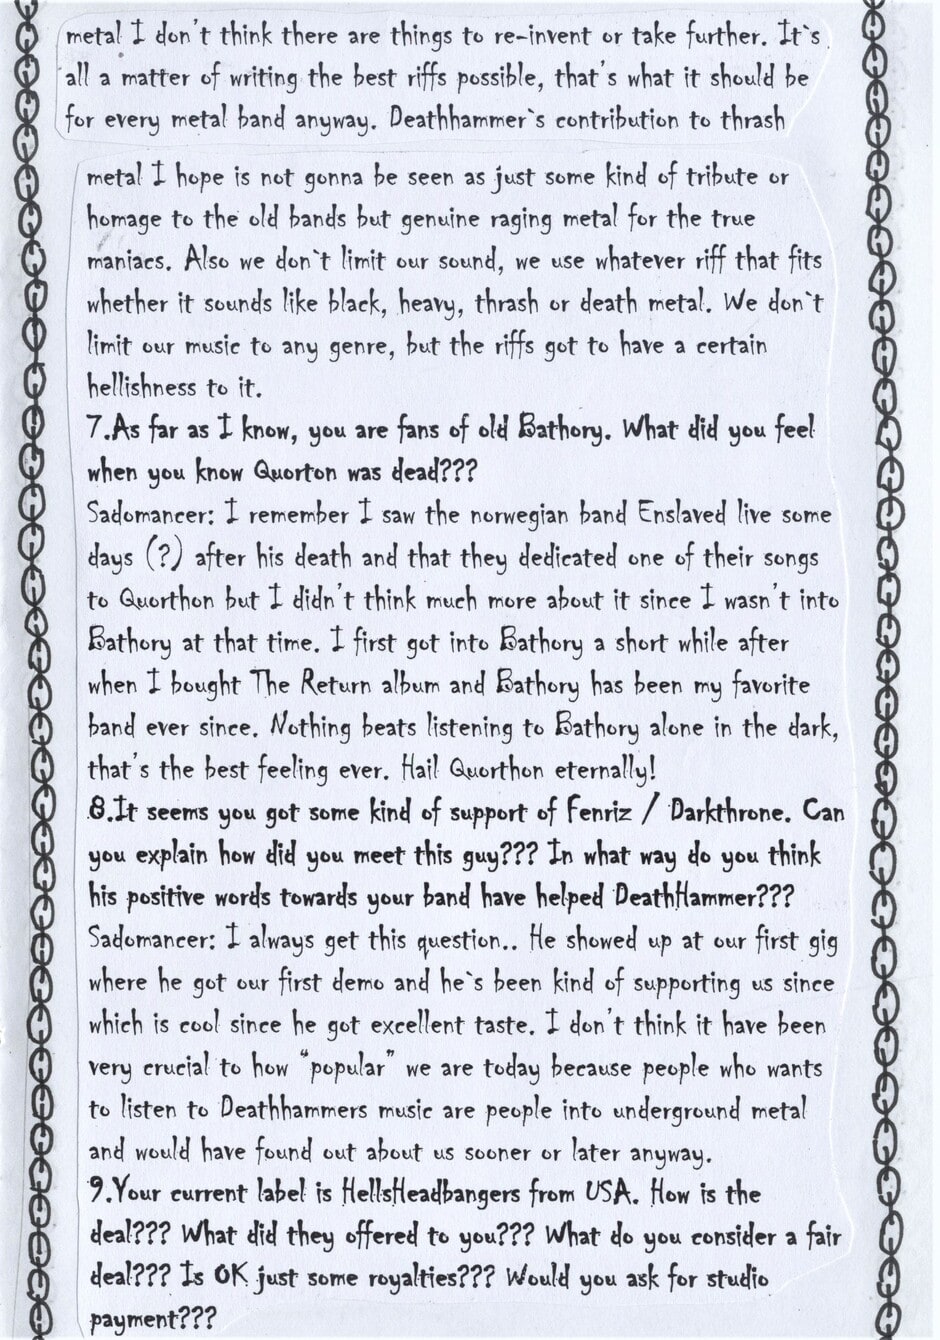 metal I don't think there are things to re-invent or take further. It`s
all a matter of writing the best riffs possible, that's what it should be
for every metal band anyway. Deathhammer`s contribution to thrash
metal I hope is not gonna be seen as just some kind of tribute or
homage to the old bands but genuine raging metal for the true
maniacs. Also we don`t limit our sound, we use whatever riff that fits
whether it sounds like black, heavy, thrash or death metal. We don`t
limit our music to any genre, but the riffs got to have a certain
hellishness to it.
7.As far as I know, you are fans of old Bathory. What did you feel
when you know Quorton was dead???
Sadomancer: I remember I saw the norwegian band Enslaved live some
days (?) after his death and that they dedicated one of their songs
to Quorthon but I didn't think much more about it since I wasn't into
Bathory at that time. I first got into Bathory a short while after
when I bought The Return album and Bathory has been my favorite
band ever since. Nothing beats listening to Bathory alone in the dark,
that's the best feeling ever. Hail Quorthon eternally!
8.It seems you got some kind of support of Fenriz / Darkthrone. Can
you explain how did you meet this guy??? In what way do you think
his positive words towards your band have helped DeathHammer???
Sadomancer: I always get this question.. He showed up at our first gig
where he got our first demo and he`s been kind of supporting us since
which is cool since he got excellent taste. I don't think it have been
very crucial to how "popular" we are today because people who wants
to listen to Deathhammers music are people into underground metal
and would have found out about us sooner or later anyway.
9.Your current label is HellsHeadbangers from USA. How is the
deal??? What did they offered to you??? What do you consider a fair
deal??? Is OK just some royalties??? Would you ask for studio
payment???